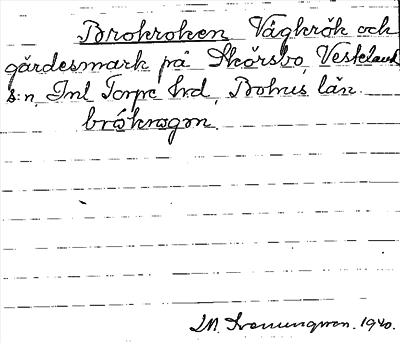 Brokroken Vägkrök och
gärdesmark på Skörsbo, Veskeland
s:n, Inl Torpe hrd, Bohus län.
bråkragen.
1940.